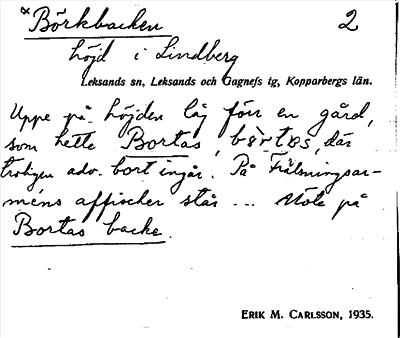 x Börkbacken 2
höjd i Lindberg
Leksands sn, Leksands och Gagnefs tg, Kopparbergs län.
Uppe på höjden låg förr en gård,
som hette Bortas, där
troligen adv. bort ingår. På Frälsningsar-
méns affischer står ... Möte på
Bortas backe.
ERIK M. CARLSSON, 1935.